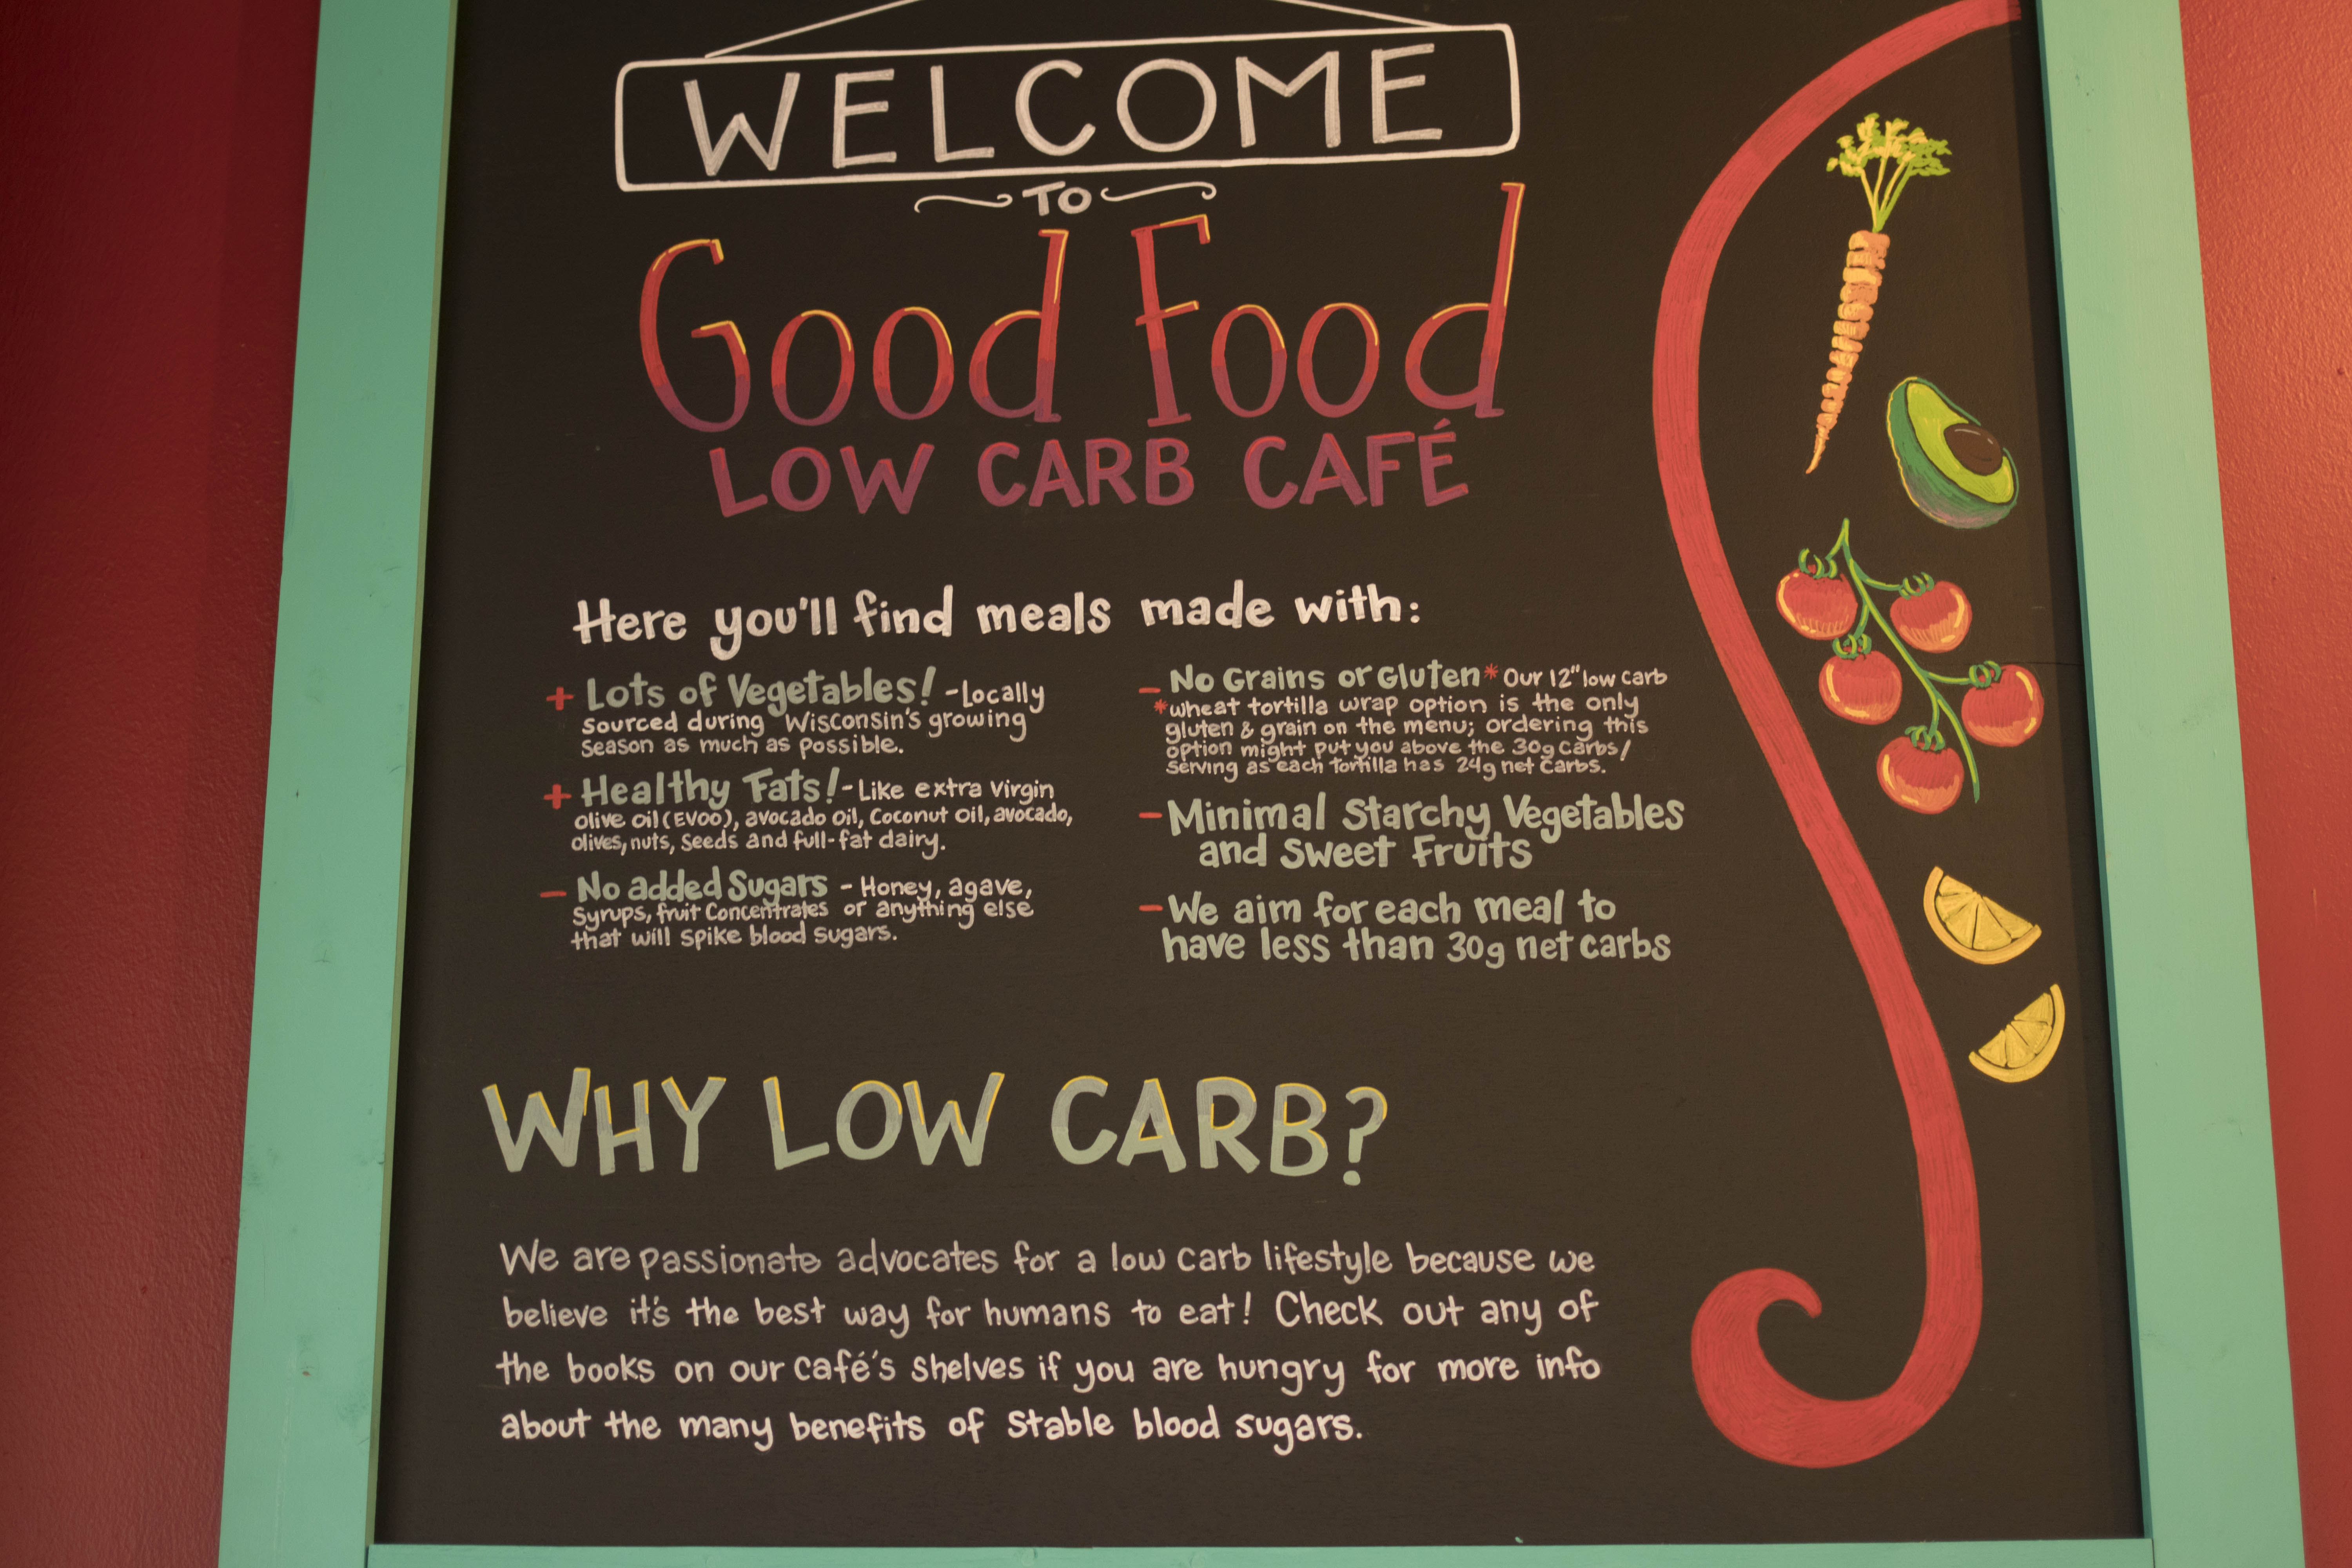 WELCOME
TO
Good Food
LOW CARB CAFÉ
Here you'll find meals made with:
+ Lots of Vegetables! - Locally
sourced during Wisconsin's growing
season as much as possible.
+ Healthy Fats! - Like extra virgin
olive oil (EVOO), avocado oil, coconut oil, avocado,
olives, nuts, seeds and full-fat dairy.
- No added Sugars - Honey, agave,
syrups, fruit concentrates or anything else
that will spike blood sugars.
- No Grains or Gluten * Our 12" low carb
*wheat tortilla wrap option is the only
gluten & grain on the menu; ordering this
option might put you above the 30g carbs/
serving as each tortilla has 24g net carbs.
- Minimal Starchy Vegetables
and Sweet Fruits
- We aim for each meal to
have less than 30g net carbs
WHY LOW CARB?
We are passionate advocates for a low carb lifestyle because we
believe it's the best way for humans to eat! Check out any of
the books on our café's shelves if you are hungry for more info
about the many benefits of stable blood sugars.